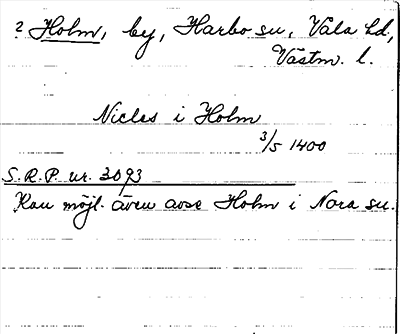 ? Holm, by, Harbo sn, Vala hd,
Västm. l.
Niclas i Holm
3/5 1400
S.R.P. nr. 3093
Kan möjl. även avse Holm i Nora sn.